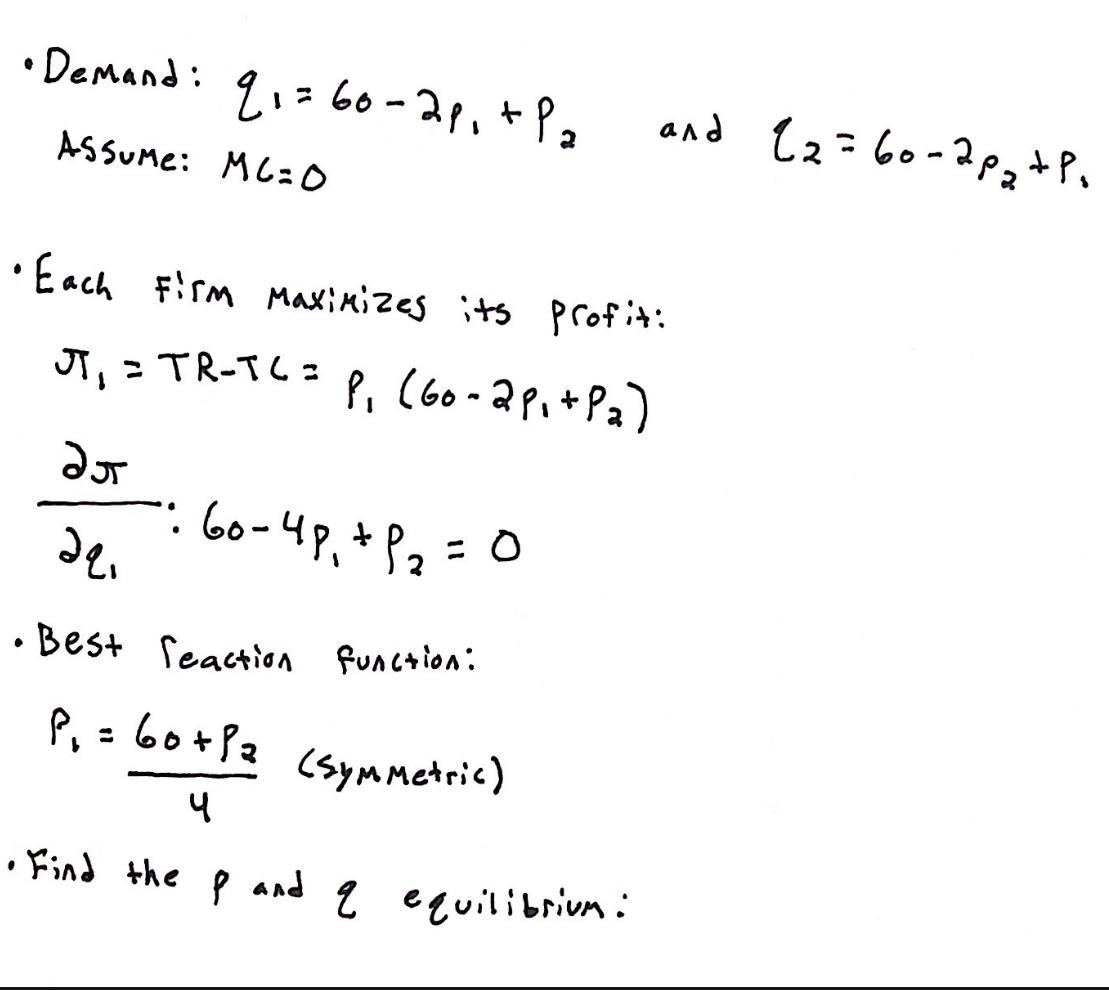 • Demand: q₁ = 60 - 2p₁ + P₂ and q₂ = 60 - 2p₂ + P₁
Assume: MC = 0
• Each firm maximizes its profit:
π₁ = TR - TC = P₁ (60 - 2P₁ + P₂)
∂π/∂q₁ : 60 - 4P₁ + P₂ = 0
• Best reaction function:
P₁ = (60 + P₂)/4 (symmetric)
• Find the p and q equilibrium: